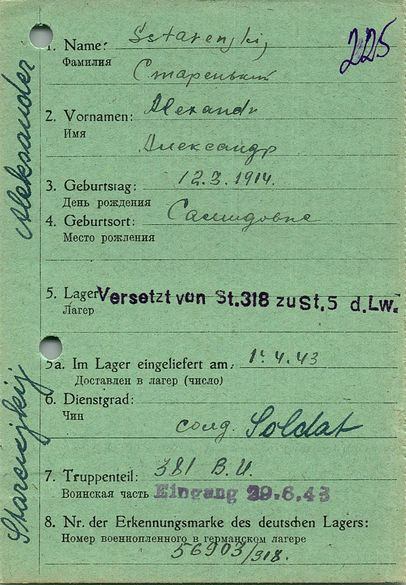 225
1. Name: Sstarenjkij
Фамилия Старенький
2. Vornamen: Alexandr
Имя Александр
3. Geburtstag: 12.3.1914.
День рождения
4. Geburtsort:
Место рожления
5. Lager Versetzt von St.318 zu St.5 d.Lw.
Лагер
5a. Im Lager eingeliefert am: 1. 4.43
Доставлен в лагер (число)
6. Dienstgrad:
Чин солд. Soldat
7. Truppenteil: 381
Воинская часть Eingang 29.6.43
8. Nr. der Erkennungsmarke des deutschen Lagers:
Номер военнопленного в германском лагере
56903/318.
Aleksander
Starenjkij